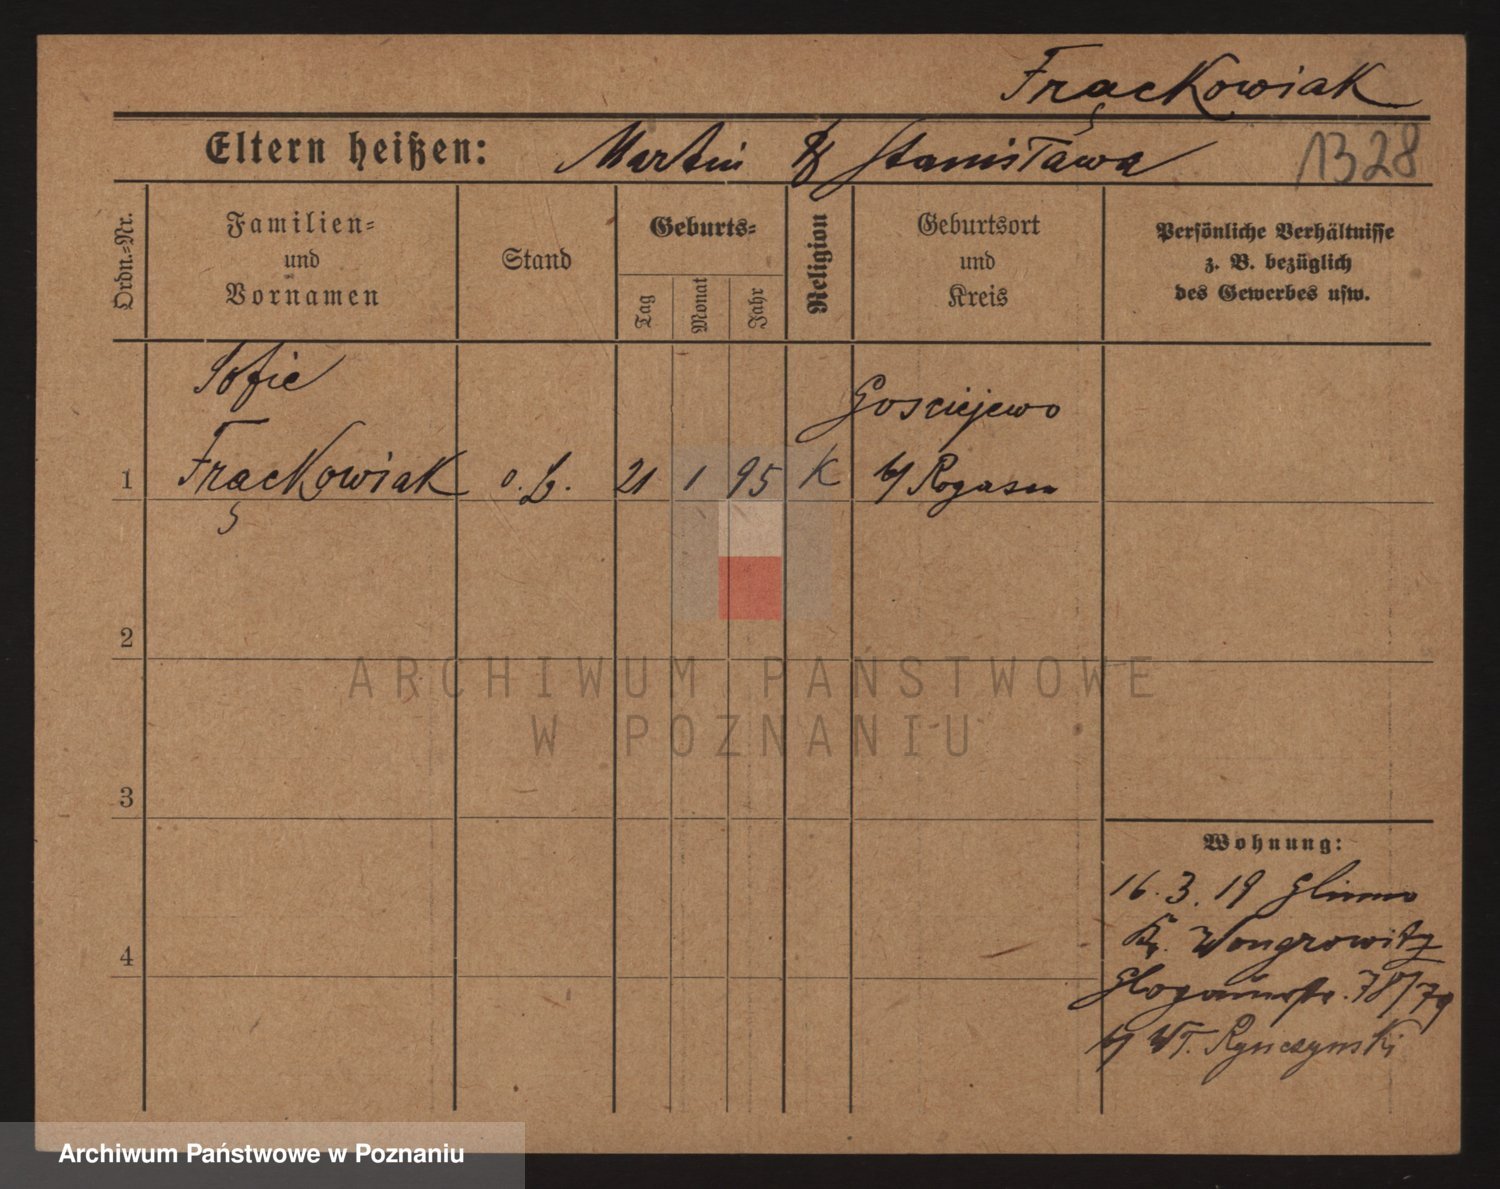 Frąckowiak
Eltern heißen: Martin & Stanisława 1328
Ordn.=Nr.
Familien=
und
Vornamen
Stand
Geburts=
Tag
Monat
Jahr
Religion
Geburtsort
und
Kreis
Persönliche Verhältnisse
z. B. bezüglich
des Gewerbes usw.
Sofie
Gosciejewo
1 Frąckowiak o. B. 21 1 95 K b/ Rogasen
2
3
4
Wohnung:
16. 3. 19 Glinno
Kr. Wongrowitz
Glogauerstr. 78/79
b/ Wł. Rynczynski
ARCHIWUM PAŃSTWOWE
W POZNANIU
Archiwum Państwowe w Poznaniu